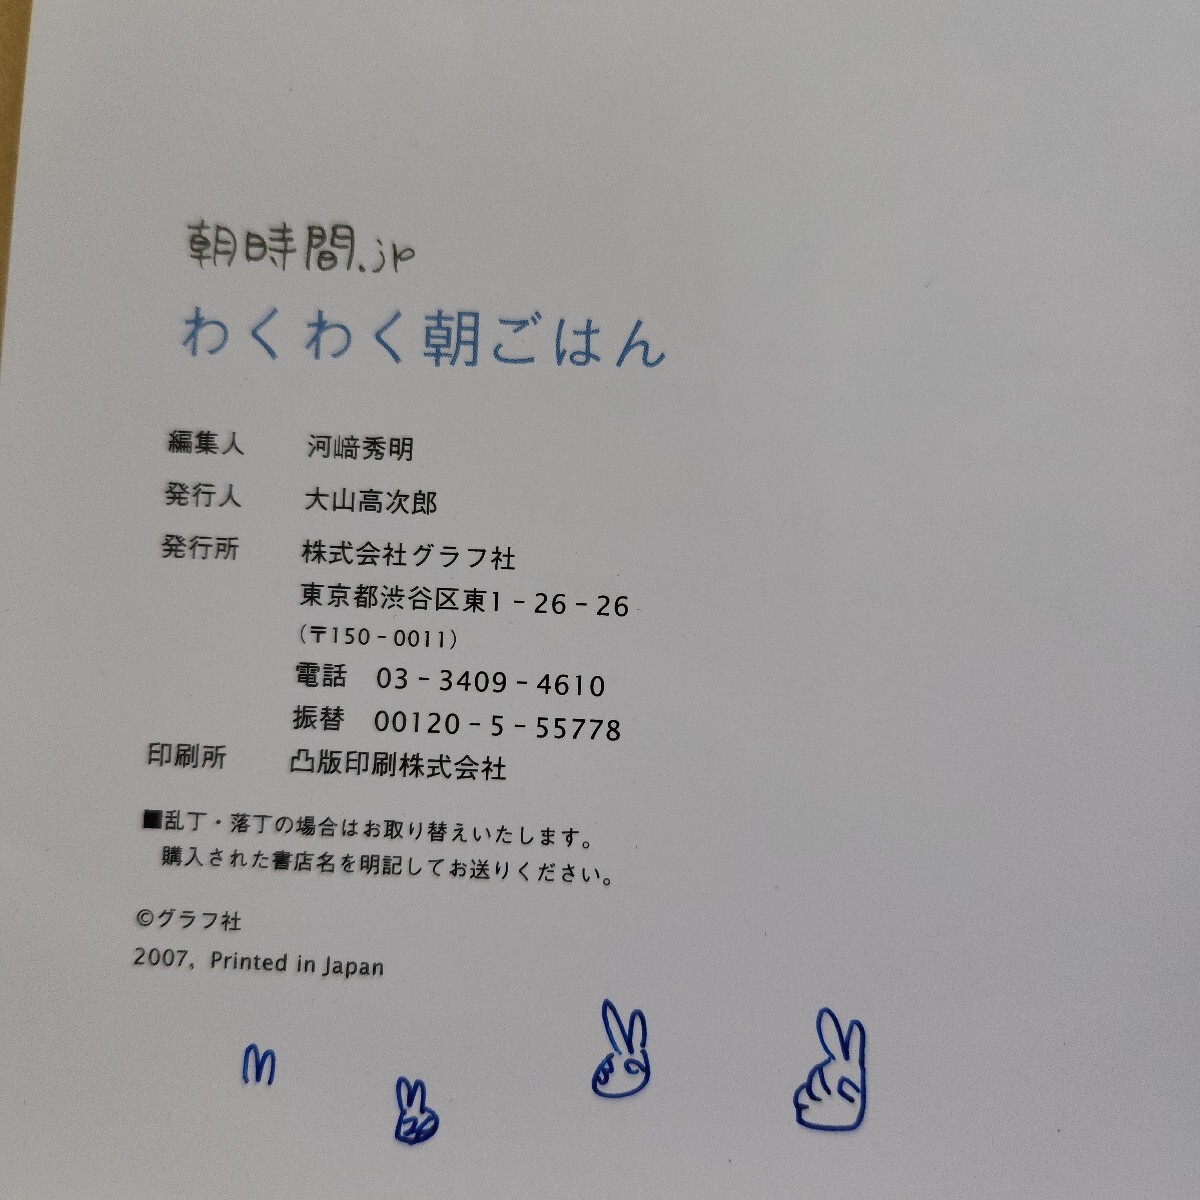 朝時間.jp
わくわく朝ごはん
編集人 河﨑秀明
発行人 大山高次郎
発行所 株式会社グラフ社
東京都渋谷区東1－26－26
（〒150－0011）
電話 03－3409－4610
振替 00120－5－55778
印刷所 凸版印刷株式会社
■乱丁・落丁の場合はお取り替えいたします。
購入された書店名を明記してお送りください。
©グラフ社
2007, Printed in Japan